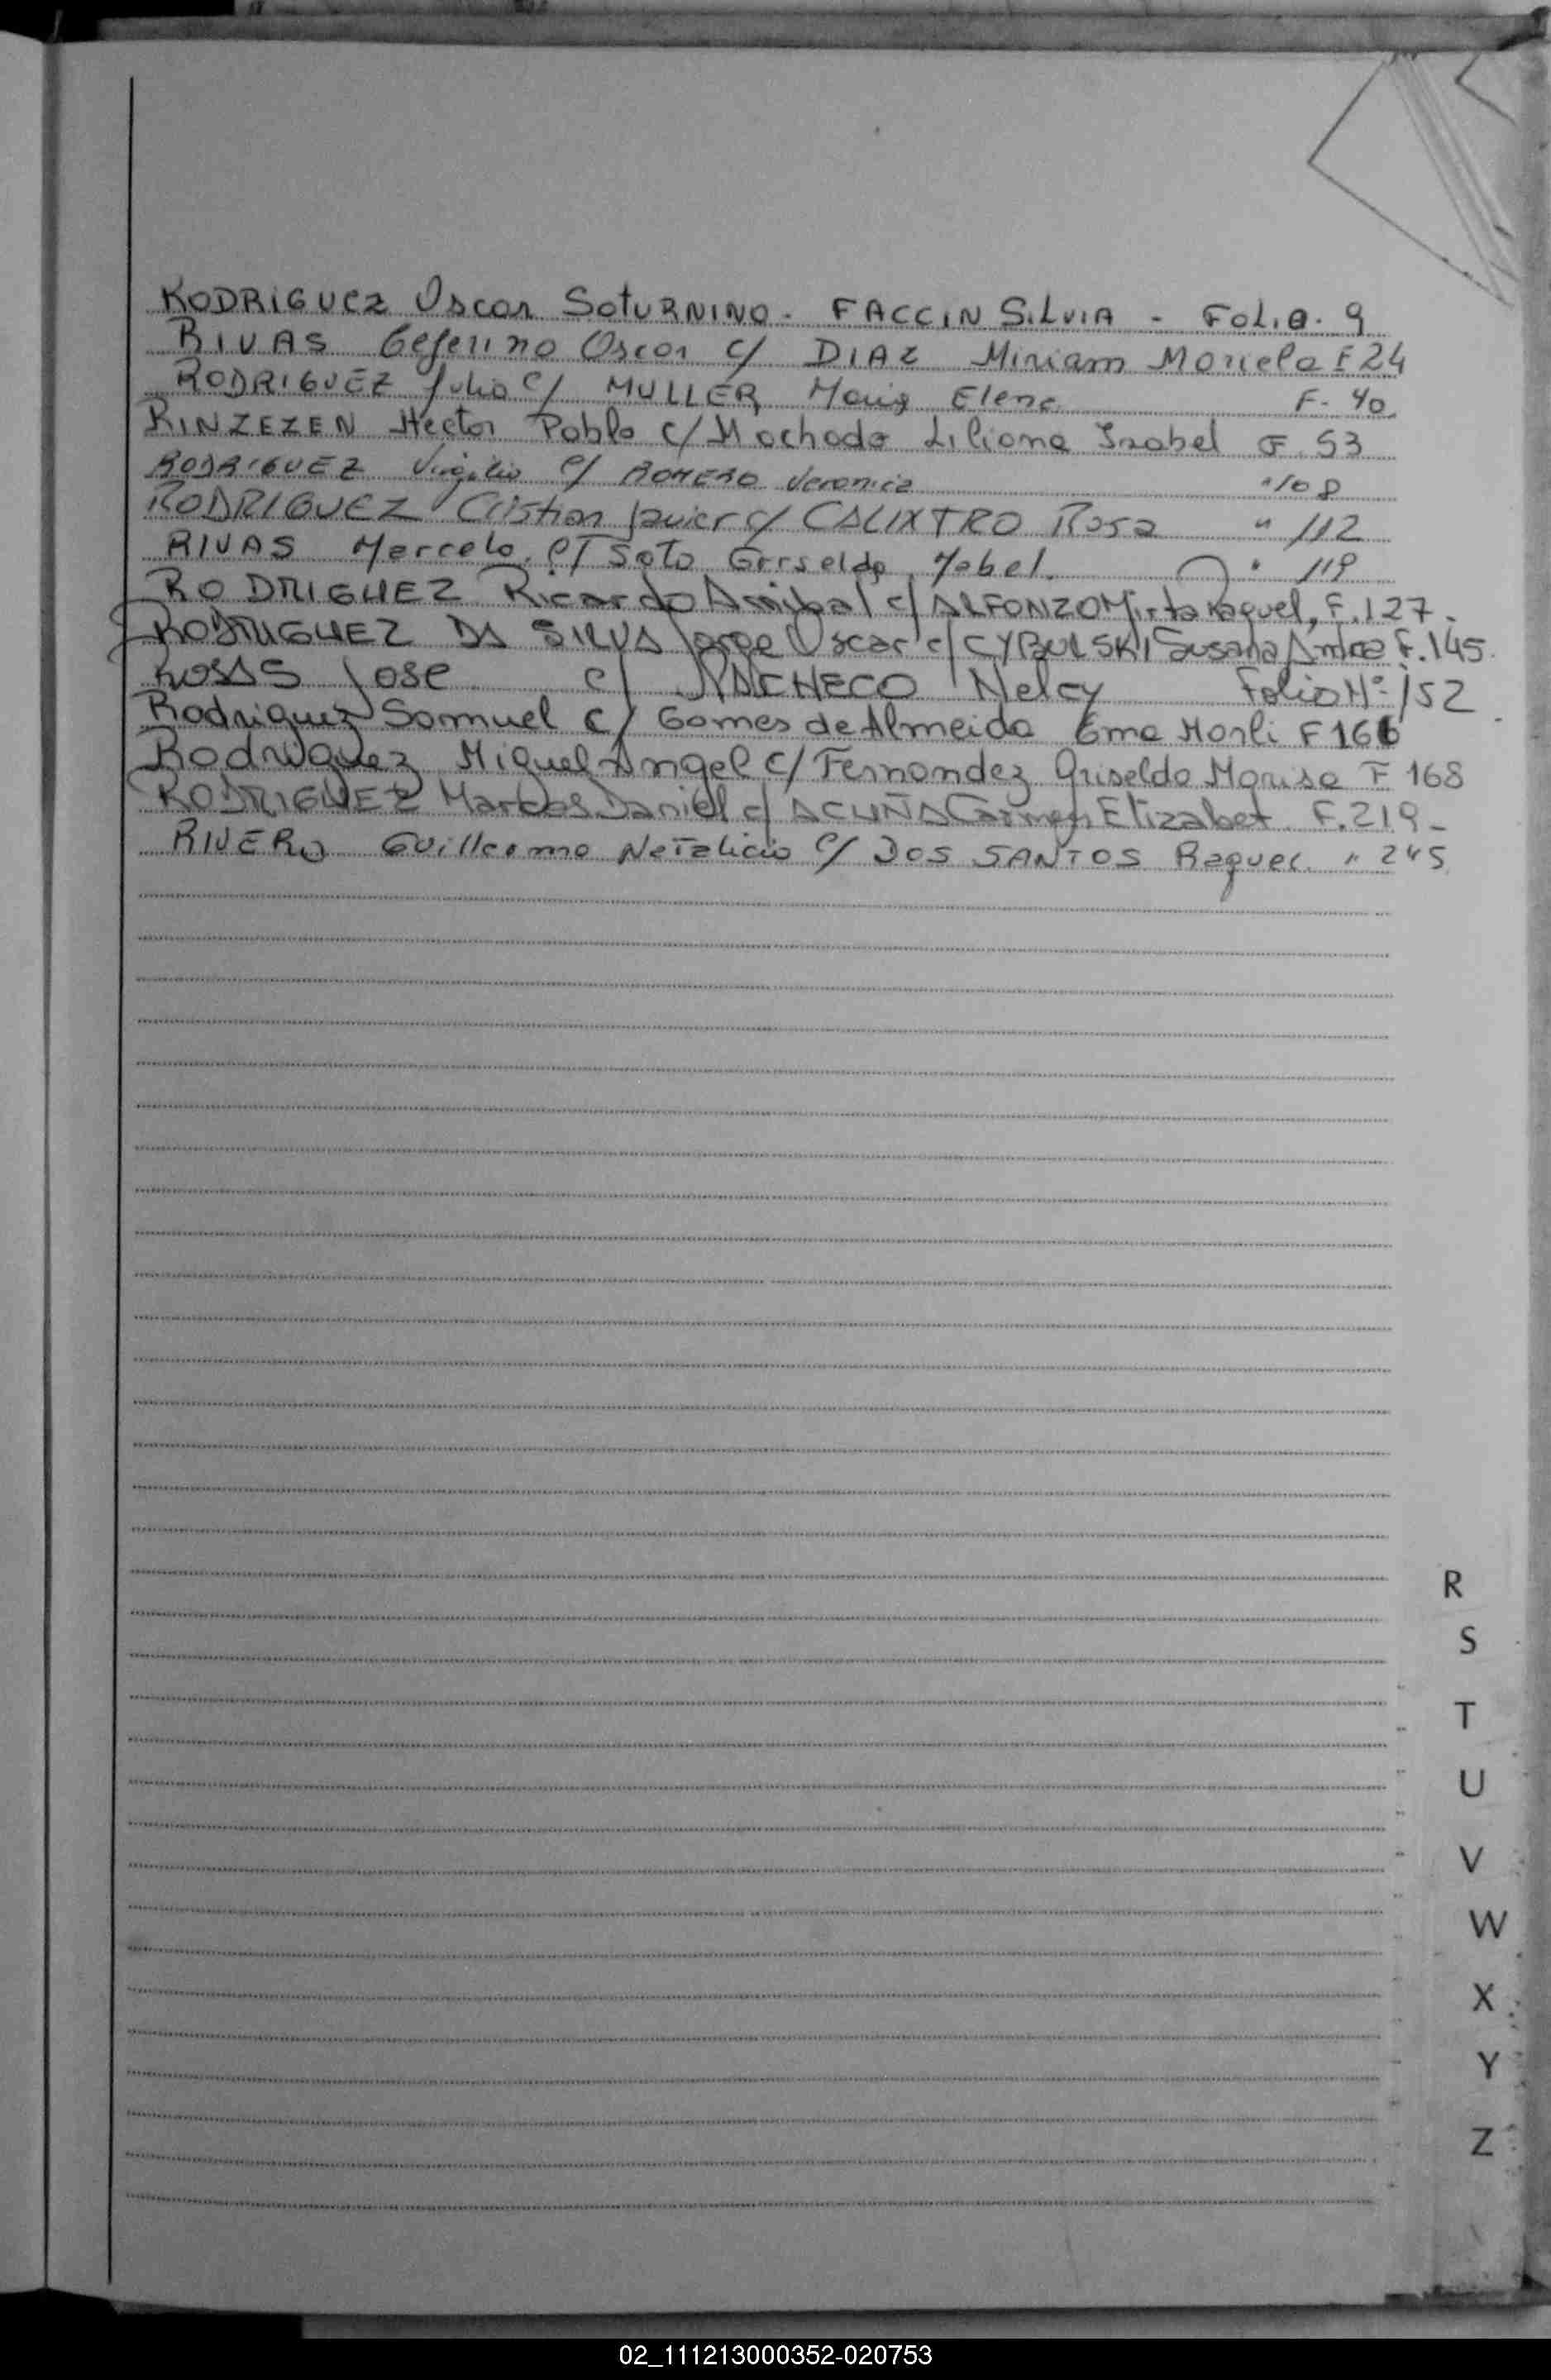 RODRIGUEZ Oscar SotURNINO - FACCIN SiLVIA - FoLio. 9
RIVAS Ceferino Oscar c/ DIAZ Miriam Mariela F 24
RODRIGUEZ Julio c/ MULLER Maria Elena F. 40
RINZEZEN Hector Pablo c/ Machado Liliana Isabel F. 53
RODRIGUEZ Virgilio c/ ROMERO Veronica " 108
RODRIGUEZ Cristian Javier c/ CALIXTRO Rosa " 112
RIVAS Marcelo c/ Soto Griselda Mabel. " 119
RODRIGUEZ Ricardo Anibal c/ ALFONZO Mirta Raquel, F. 127.
RODRIGUEZ DA SILVA Jorge Oscar c/ CYBULSKI Susana Andrea F. 145.
ROSAS Jose c/ PACHECO Nelcy Folio Nº 152
Rodriguez Samuel c/ Gomes de Almeida Ema Marli F 166
Rodriguez Miguel Angel c/ Fernandez Griselda Marisa F 168
RODRIGUEZ Marcos Daniel c/ ACUÑA Carmen Elizabet F. 219-
RIVERO Guillermo Natalicio c/ DOS SANTOS Raquel " 245
R
S
T
U
V
W
X
Y
Z
02_111213000352-020753